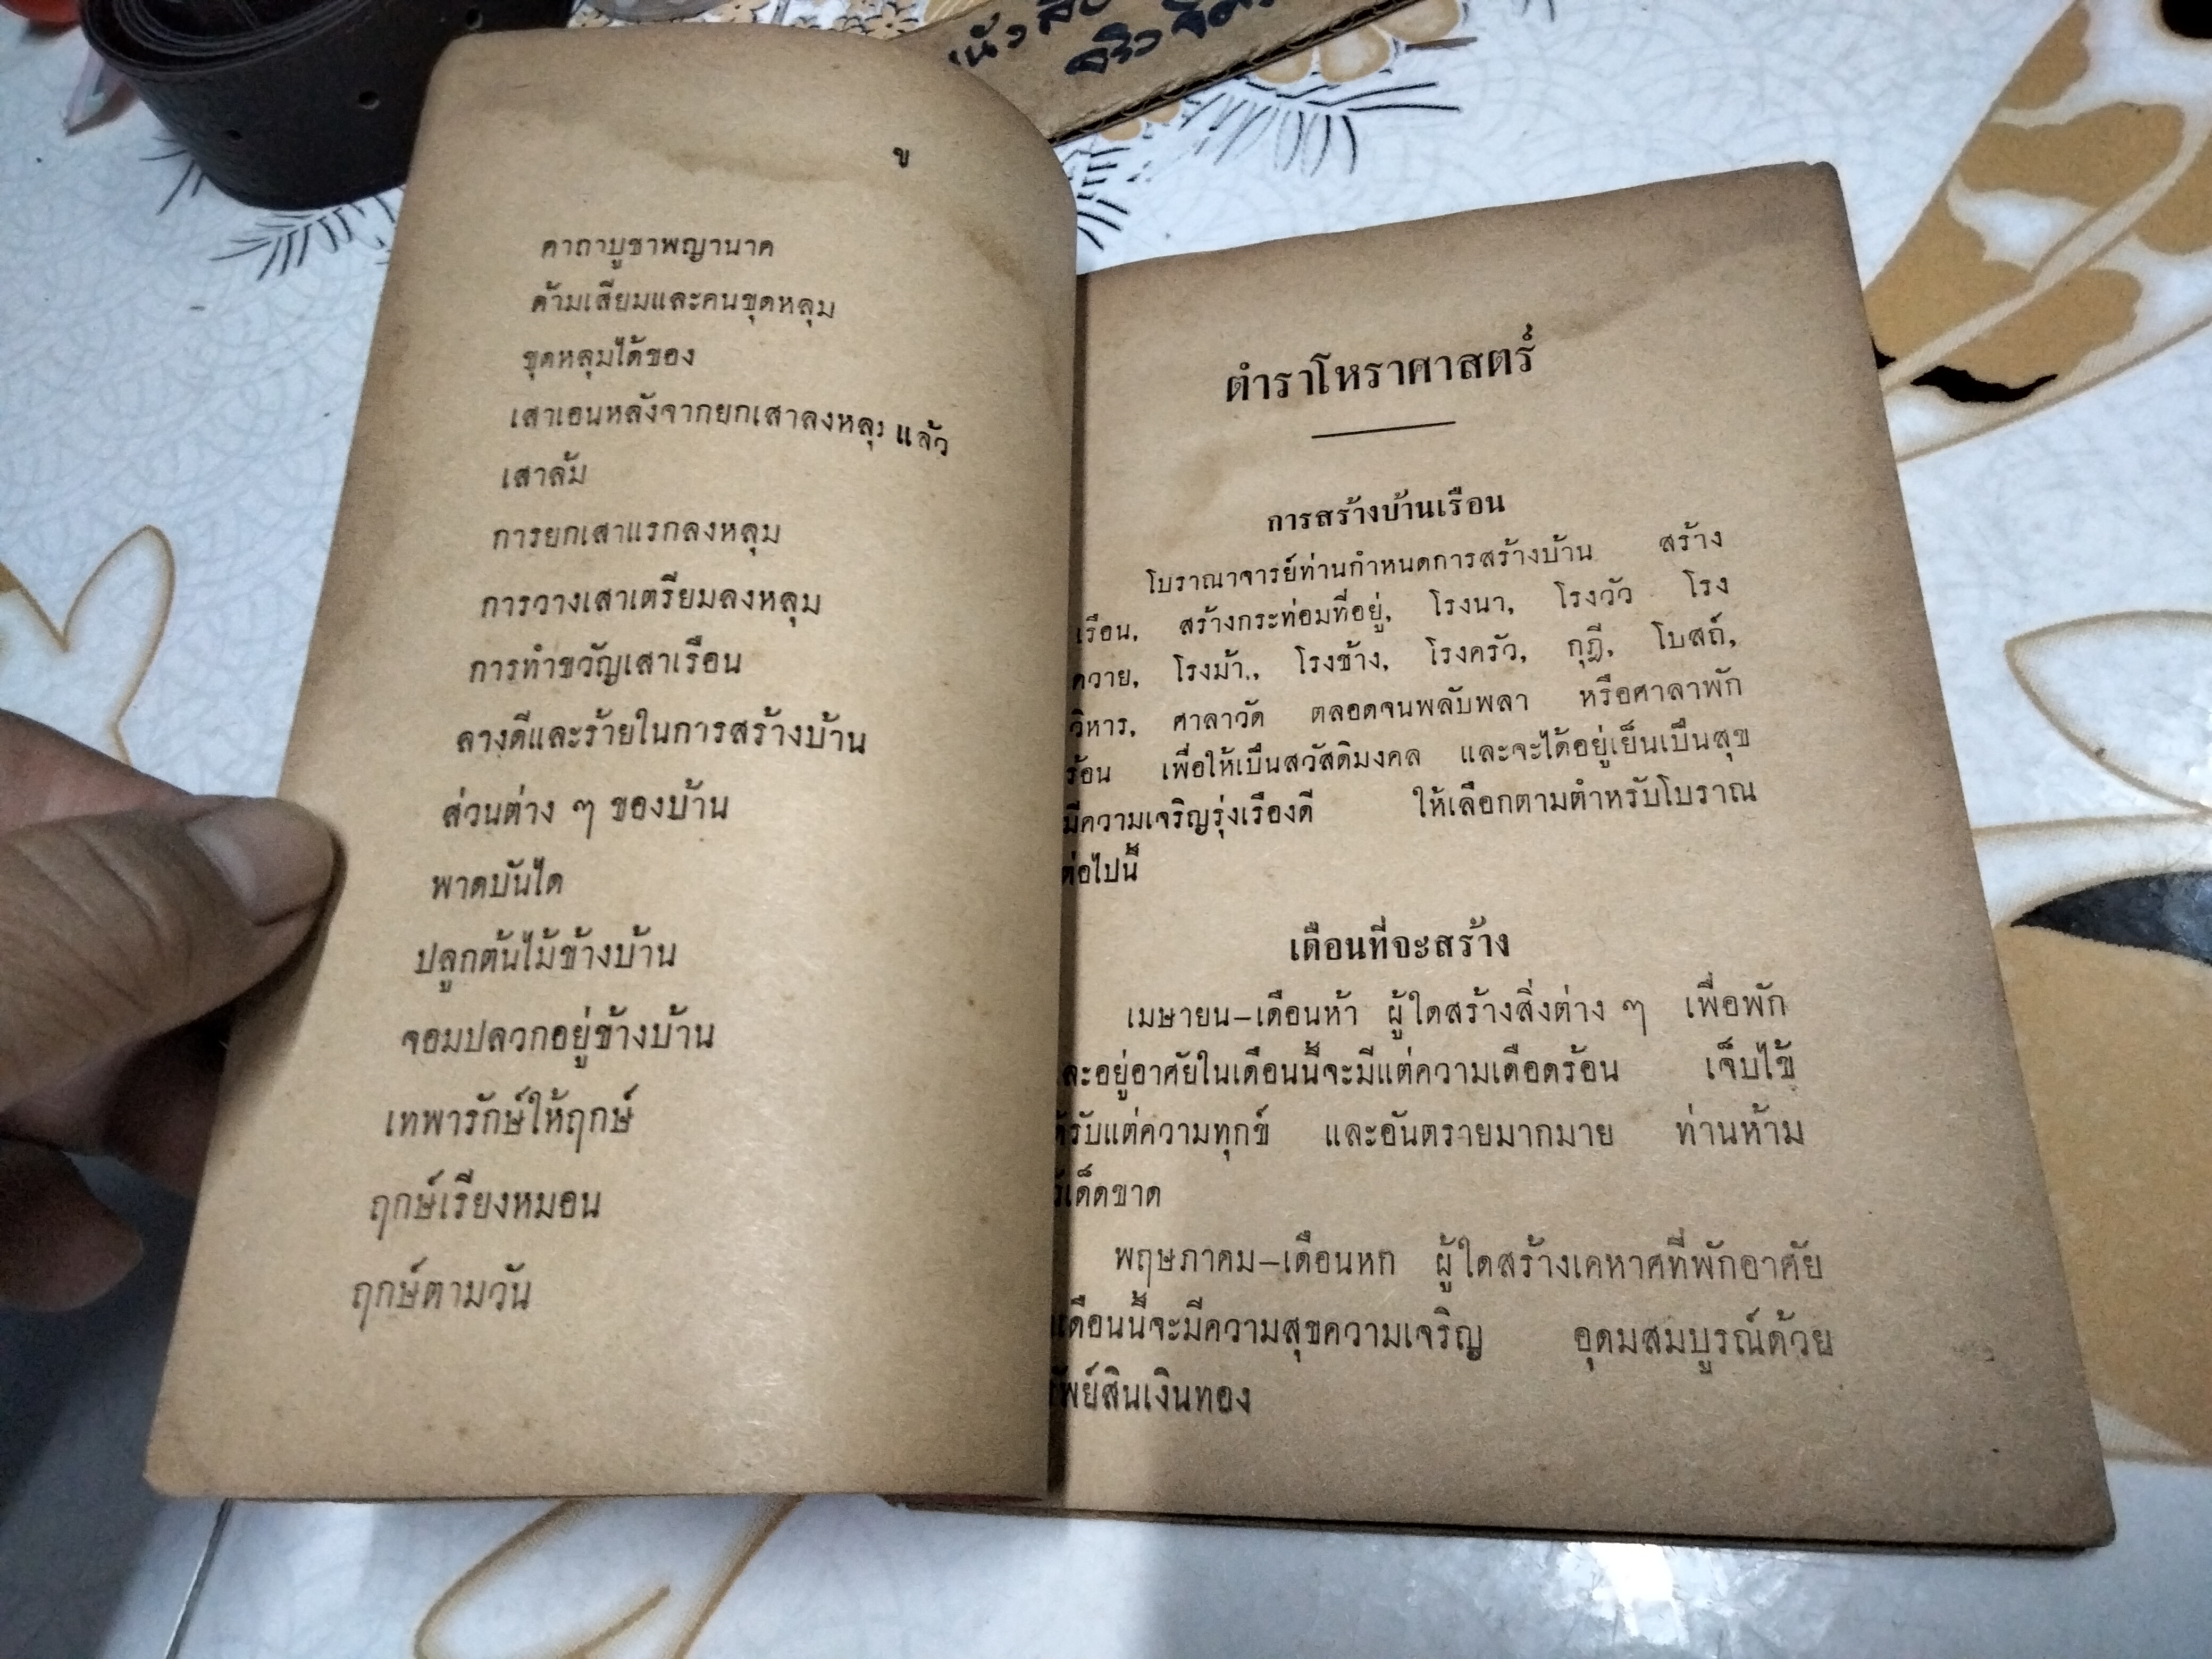 ข
คาถาบูชาพญานาค
ด้ามเสียมและคนขุดหลุม
ขุดหลุมได้ของ
เสาเอนหลังจากยกเสาลงหลุม แล้ว
เสาล้ม
การยกเสาแรกลงหลุม
การวางเสาเตรียมลงหลุม
การทำขวัญเสาเรือน
ลางดีและร้ายในการสร้างบ้าน
ส่วนต่าง ๆ ของบ้าน
พาดบันได
ปลูกต้นไม้ข้างบ้าน
จอมปลวกอยู่ข้างบ้าน
เทพารักษ์ให้ฤกษ์
ฤกษ์เรียงหมอน
ฤกษ์ตามวัน
ตำราโหราศาสตร์
การสร้างบ้านเรือน
โบราณาจารย์ท่านกำหนดการสร้างบ้าน สร้าง
เรือน, สร้างกระท่อมที่อยู่, โรงนา, โรงวัว โรง
ควาย, โรงม้า, โรงช้าง, โรงครัว, กุฎี, โบสถ์,
วิหาร, ศาลาวัด ตลอดจนพลับพลา หรือศาลาพัก
ร้อน เพื่อให้เป็นสวัสดิมงคล และจะได้อยู่เย็นเป็นสุข
มีความเจริญรุ่งเรืองดี ให้เลือกตามตำหรับโบราณ
ต่อไปนี้
เดือนที่จะสร้าง
เมษายน–เดือนห้า ผู้ใดสร้างสิ่งต่าง ๆ เพื่อพัก
ละอยู่อาศัยในเดือนนี้จะมีแต่ความเดือดร้อน เจ็บไข้
ด้รับแต่ความทุกข์ และอันตรายมากมาย ท่านห้าม
เด็ดขาด
พฤษภาคม–เดือนหก ผู้ใดสร้างเคหาศที่พักอาศัย
เดือนนี้จะมีความสุขความเจริญ อุดมสมบูรณ์ด้วย
พย์สินเงินทอง